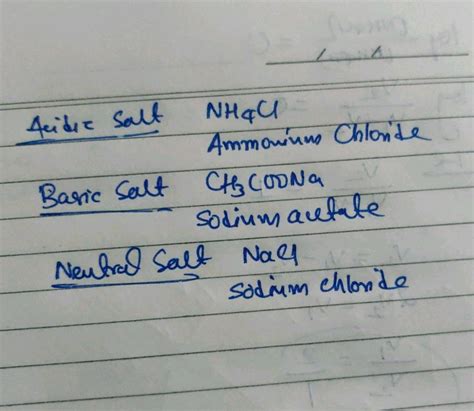 Acidic Salt NH4Cl
Ammonium Chloride
Basic Salt CH3COONa
Sodium acetate
Neutral Salt NaCl
Sodium chloride